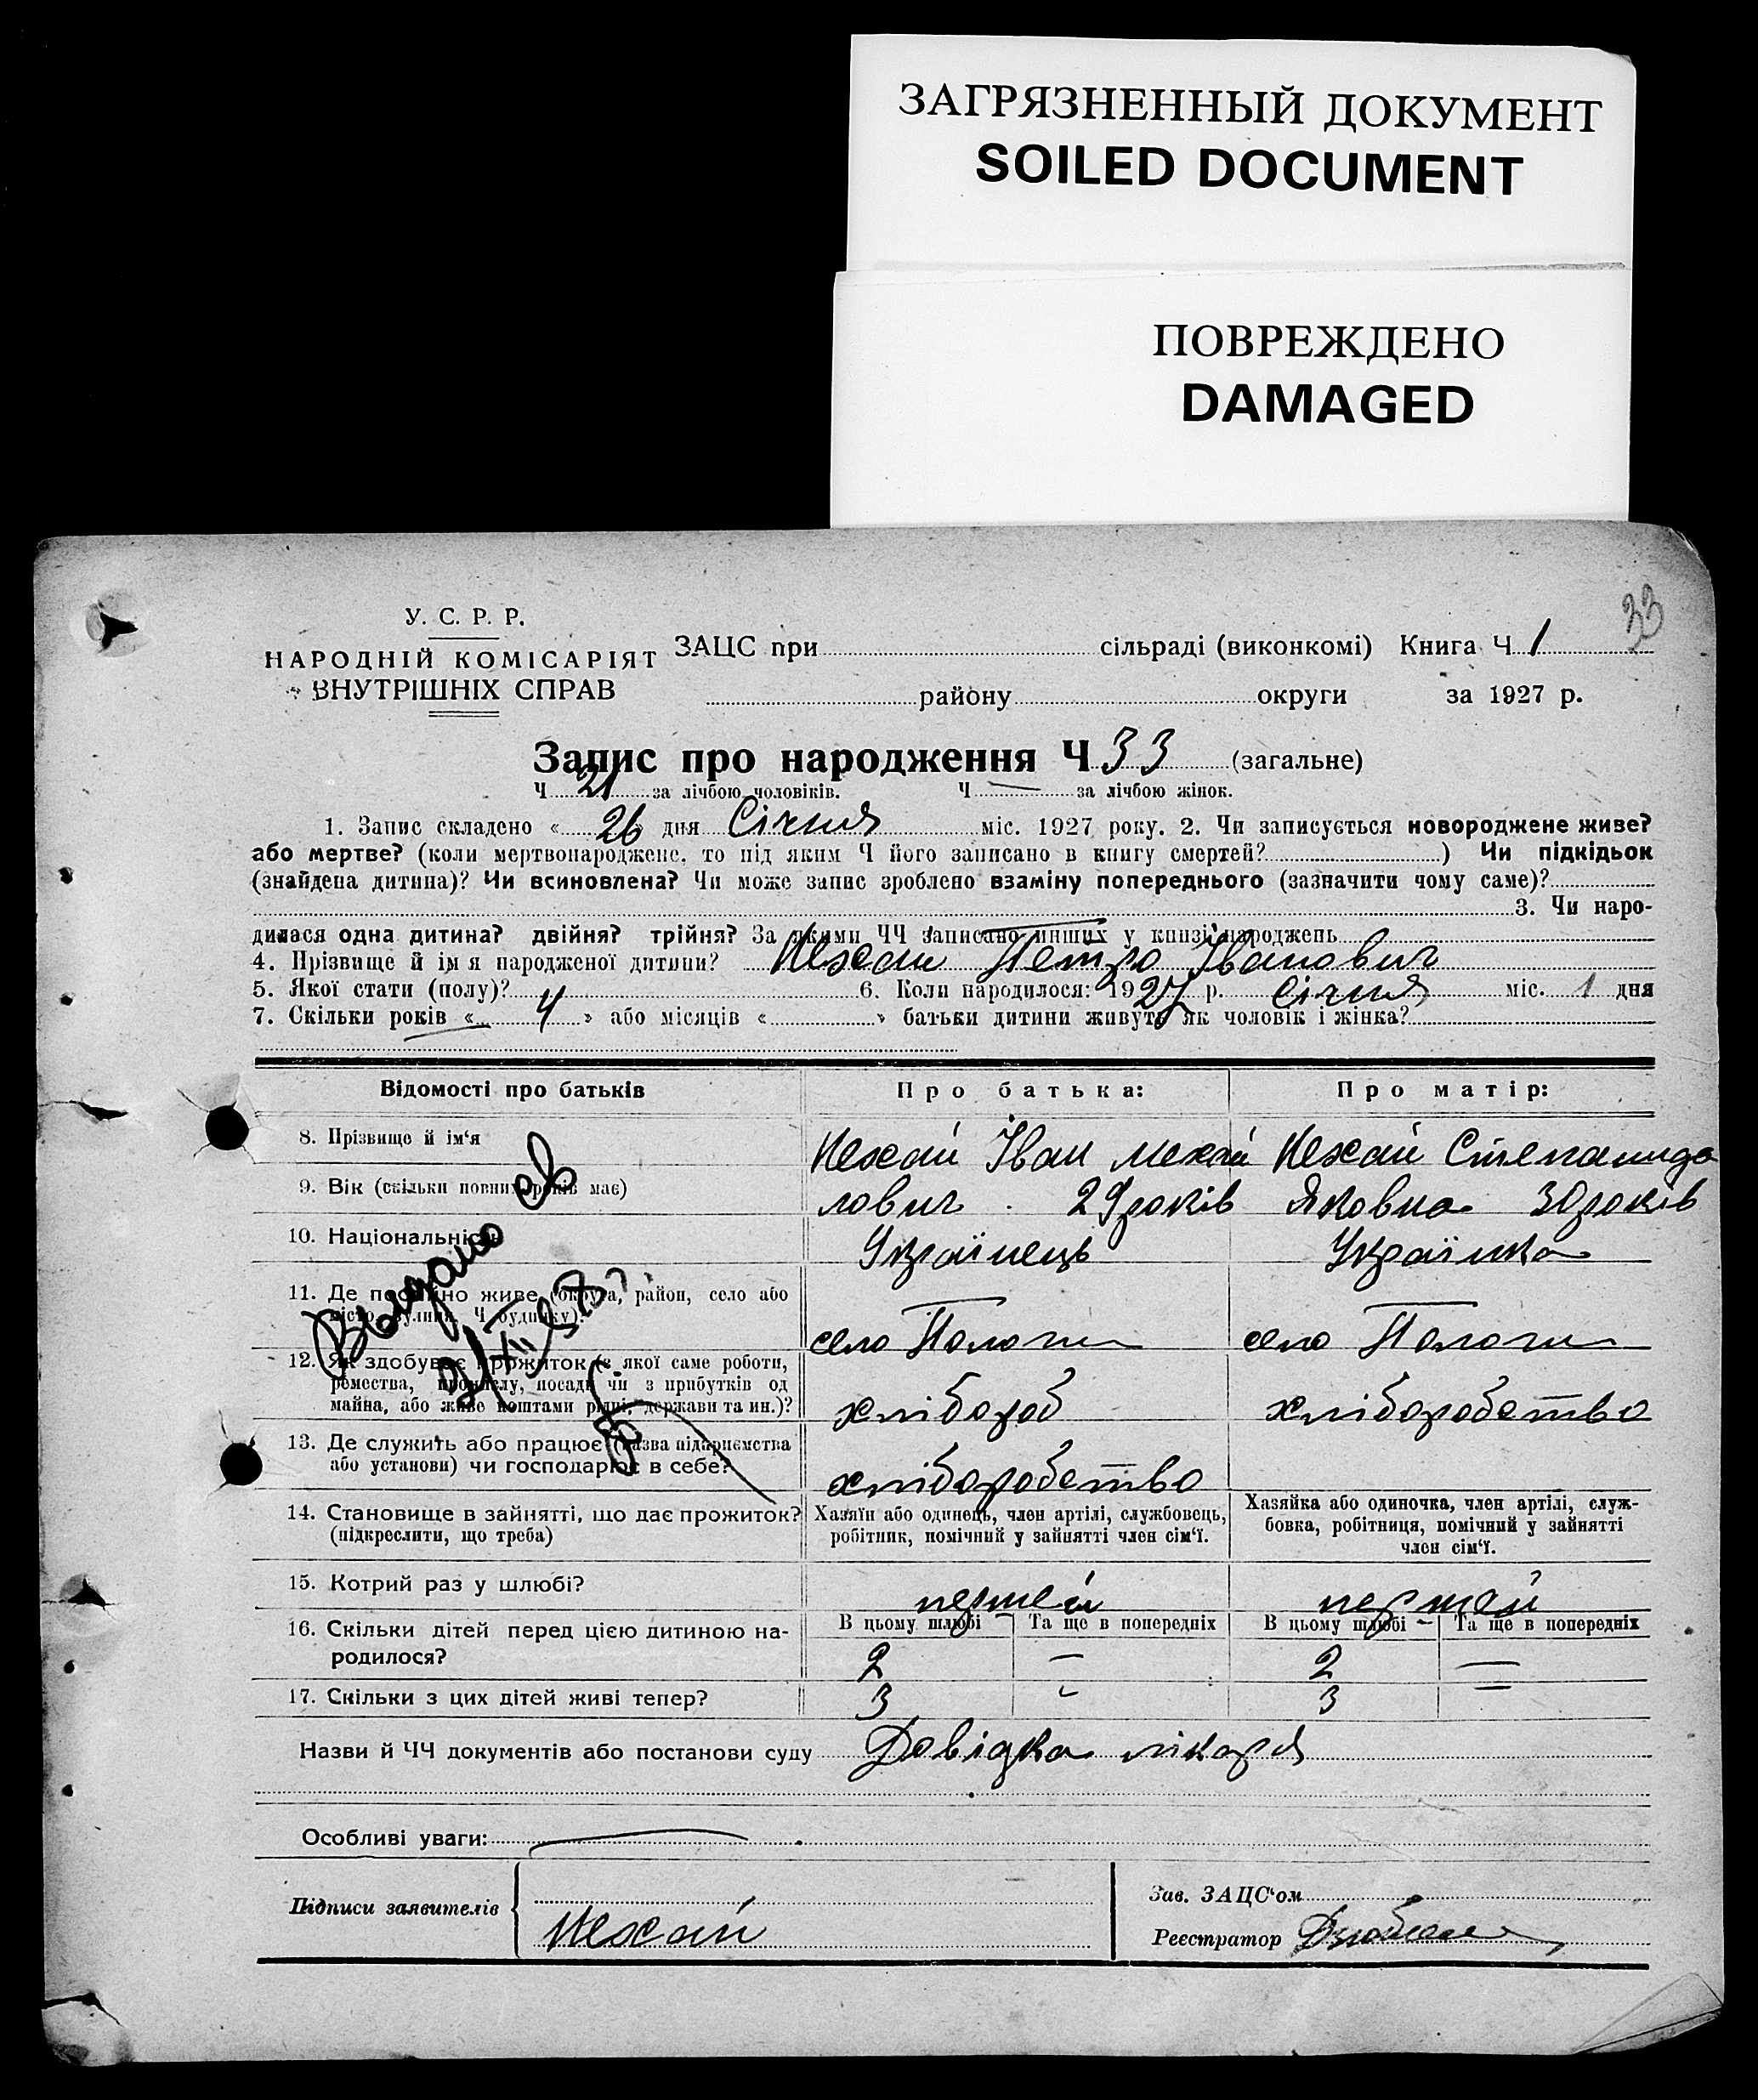 ЗАГРЯЗНЕННЫЙ ДОКУМЕНТ
SOILED DOCUMENT
ПОВРЕЖДЕНО
DAMAGED
33
У. С. Р. Р.
НАРОДНІЙ КОМІСАРІЯТ
ВНУТРІШНІХ СПРАВ
ЗАЦС при сільраді (виконкомі) Книга Ч 1
району округи за 1927 р.
Запис про народження Ч 33 (загальне)
Ч 21 за лічбою чоловіків. Ч — за лічбою жінок.
1. Запис складено « 26 » дня Січня міс. 1927 року. 2. Чи записується новороджене живе?
або мертве? (коли мертвонароджене, то під яким Ч його записано в книгу смертей? ) Чи підкідьок
(знайдена дитина)? Чи всиновлена? Чи може запис зроблено взаміну попереднього (зазначити чому саме)?
3. Чи наро-
дилася одна дитина? двійня? трійня? За якими ЧЧ записано инших у книзі народжень
4. Прізвище й ім я народженої дитини? Нехай Петро Іванович
5. Якої стати (полу)? ч 6. Коли народилося: 1927 р. Січня міс. 1 дня
7. Скільки років « » або місяців « » батьки дитини живуть як чоловік і жінка?
Відомості про батьків Про батька: Про матір:
8. Прізвище й ім‘я Нехай Іван Михай Нехай Степанида
9. Вік (скільки повних років має) лович 29 років Яковна 30 років
10. Національність Українець Українка
11. Де постійно живе (округа, район, село або
місто, вулиця, Ч будинку)? село Пологи село Пологи
12. Як здобуває прожиток (з якої саме роботи,
ремества, промислу, посади чи з прибутків од
майна, або живе коштами рідні, держави та ин.)? хлібороб хліборобство
13. Де служить або працює (назва підприємства
або установи) чи господарює в себе? хліборобство
14. Становище в зайнятті, що дає прожиток?
(підкреслити, що треба)
Хазяїн або одинець, член артілі, службовець,
робітник, помічний у зайнятті член сім‘ї.
Хазяйка або одиночка, член артілі, служ-
бовка, робітниця, помічний у зайнятті
член сім‘ї.
15. Котрий раз у шлюбі? першей першей
16. Скільки дітей перед цією дитиною на-
родилося?
В цьому шлюбі Та ще в попередніх В цьому шлюбі Та ще в попередніх
2 — 2 —
17. Скільки з цих дітей живі тепер? 3 - 3 —
Выдано св
Назви й ЧЧ документів або постанови суду Довідка лікаря
Особливі уваги:
Підписи заявителів Нехай
Зав. ЗАЦС‘ом
Реєстратор